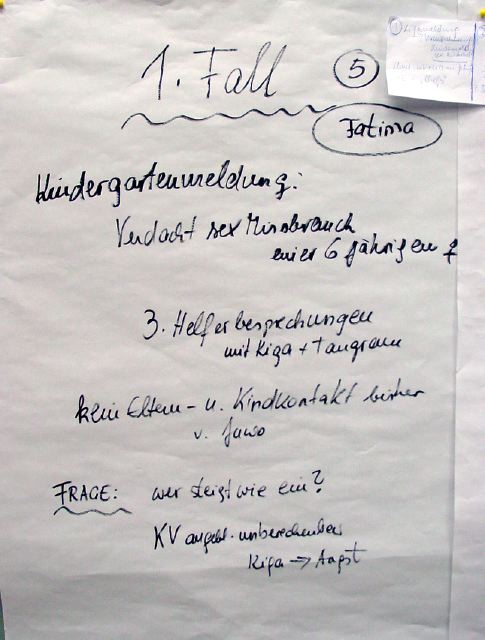 1. Fall
5
Fatima
Kindergartenmeldung:
Verdacht sex Missbrauch
einer 6 jährigen ♀
3. Helferbesprechungen
mit Kiga + Tangram
kein Eltern- u. Kindkontakt bisher
v. Juwo
FRAGE: wer steigt wie ein?
KV angebl. unberechenbar
Kiga → Angst